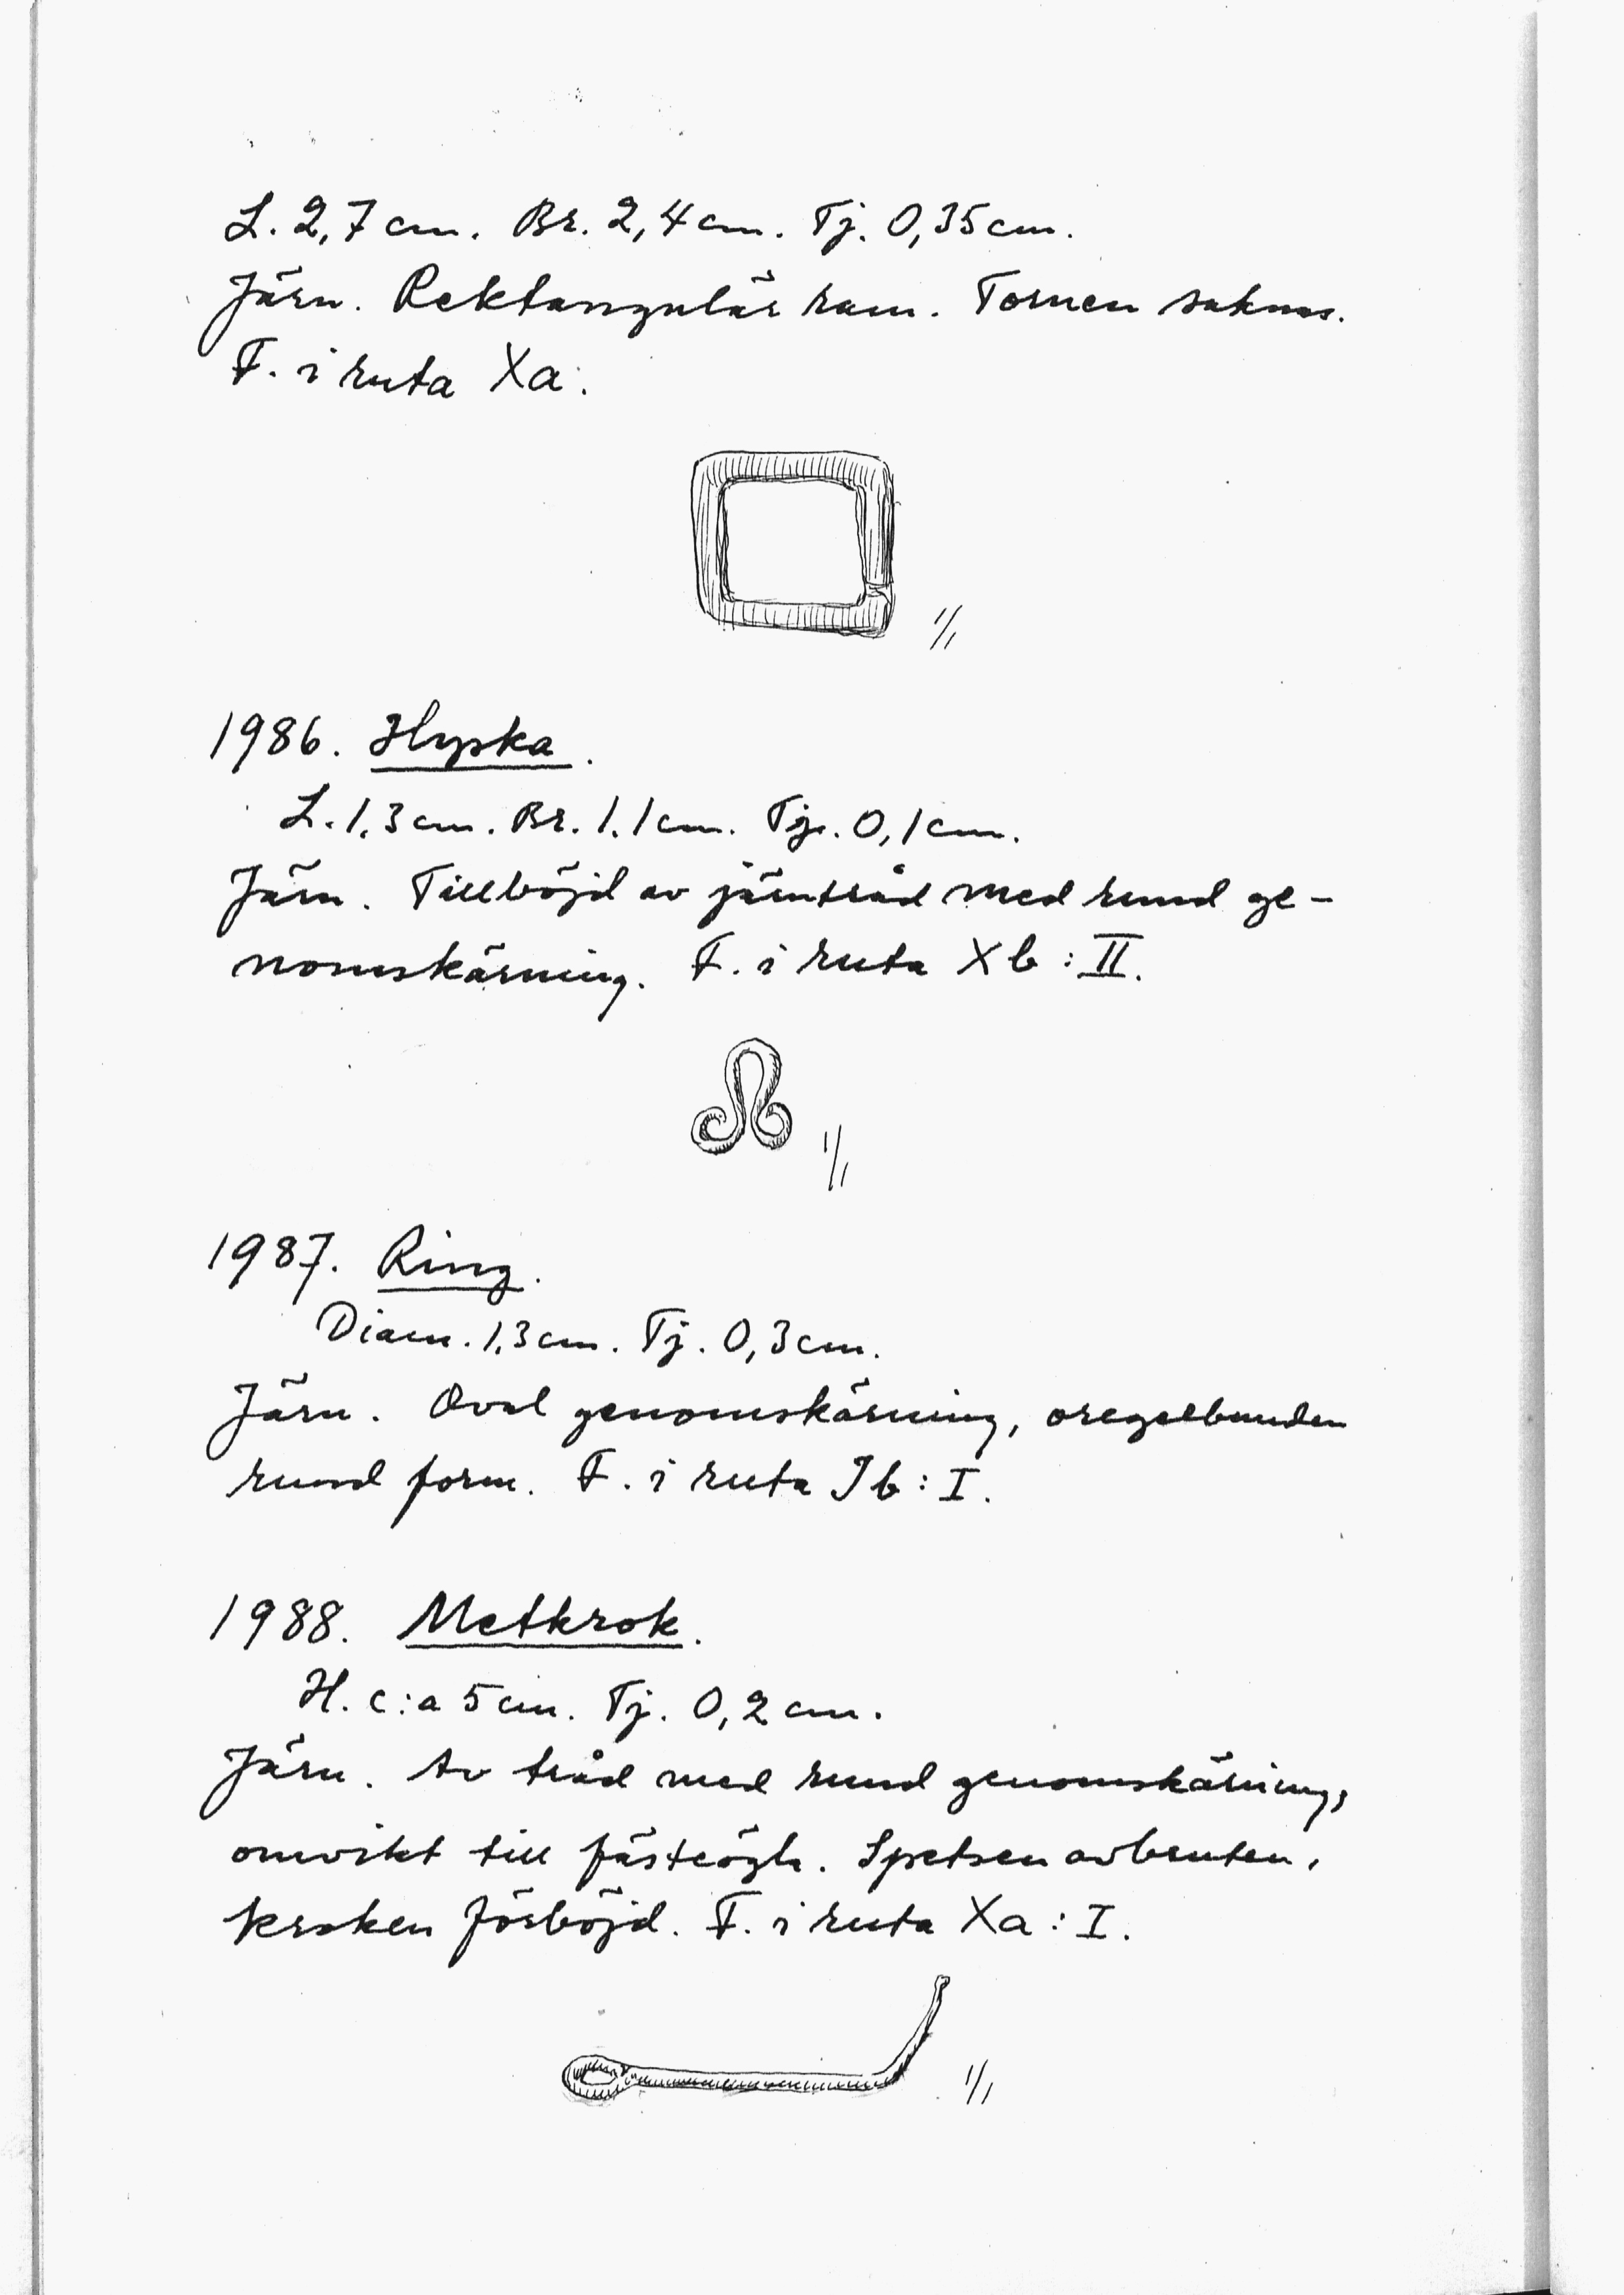 L. 2,7 cm. Br. 2,4 cm. Tj. 0,35 cm.
Järn. Rektangulär ram. Tornen saknas.
F. i ruta Xa.
1/1
1986. Hyska.
L. 1,3 cm. Br. 1,1 cm. Tj. 0,1 cm.
Järn. Tillböjd av järntråd med rund ge-
nomskärning. F. i ruta Xb : II.
1/1
1987. Ring.
Diam. 1,3 cm. Tj. 0,3 cm.
Järn. Oval genomskärning, oregelbunden
rund form. F. i ruta Ib : I.
1988. Metkrok.
H. c:a 5 cm. Tj. 0,2 cm.
Järn. Av tråd med rund genomskärning,
omvikt till fästeögla. Spetsen avbruten,
kroken förböjd. F. i ruta Xa : I.
1/1